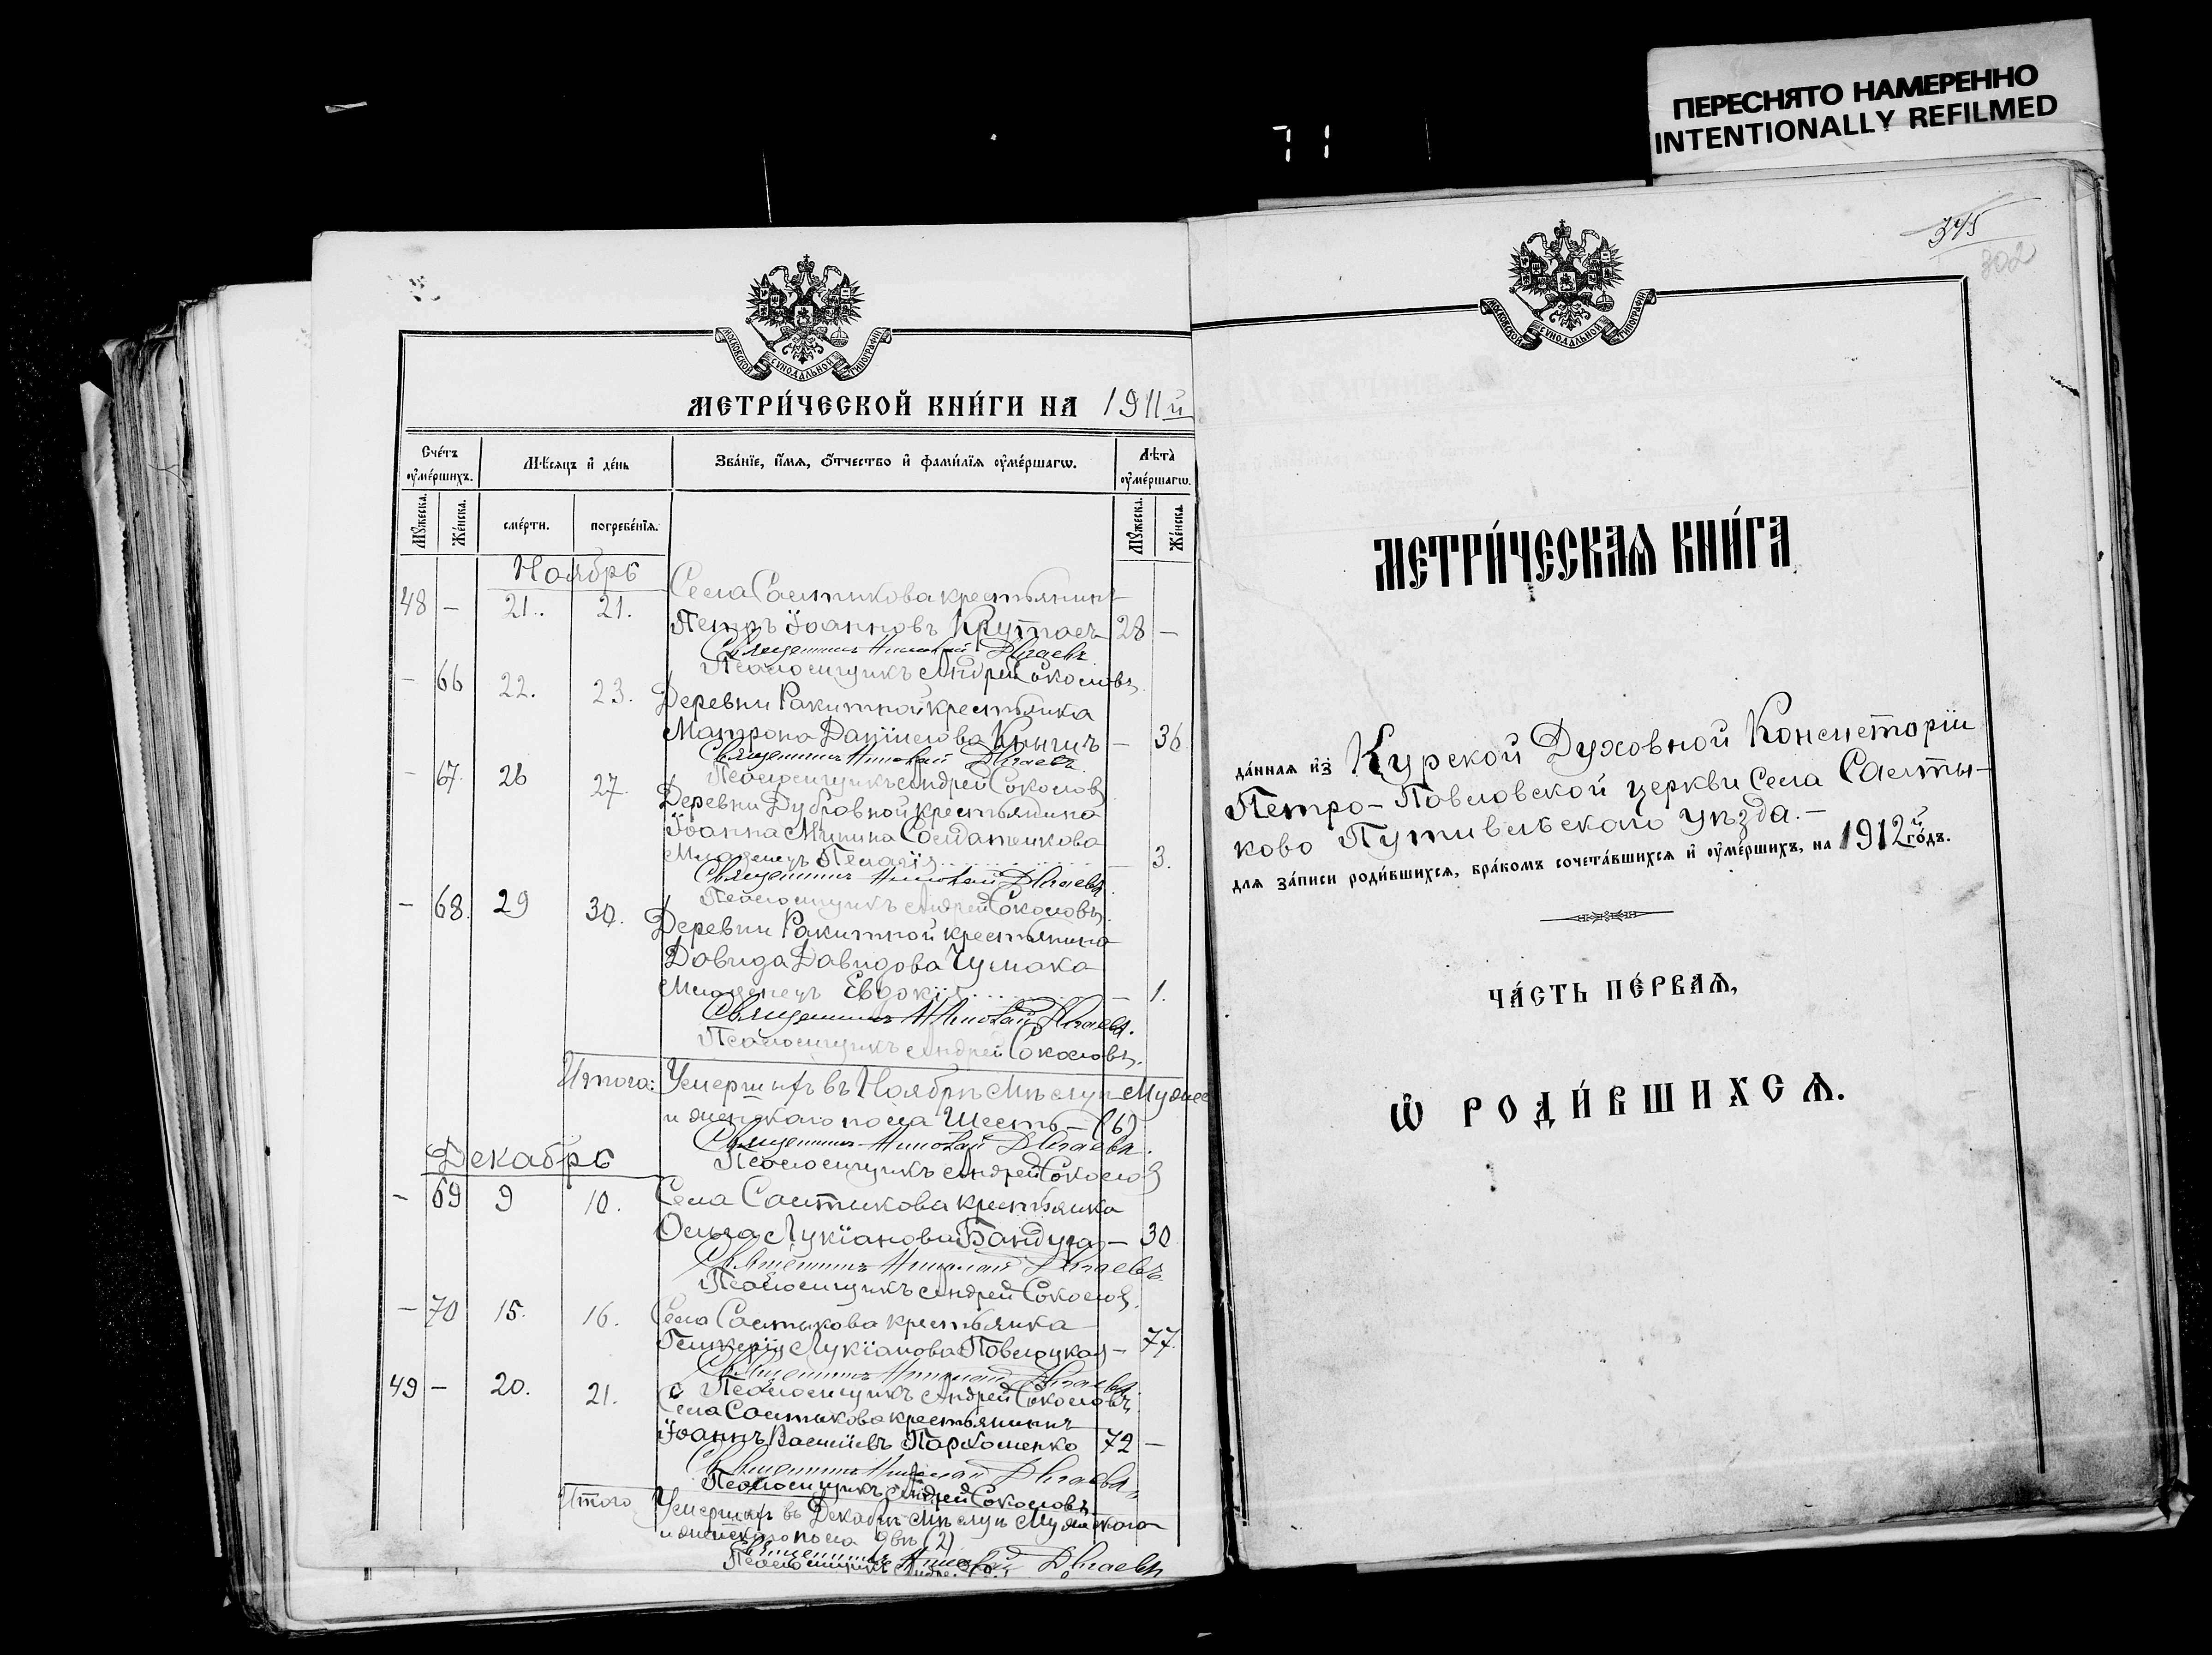 ПЕРЕСНЯТО НАМЕРЕННО
INTENTIONALLY REFILMED
71
МОСКОВСКОЙ СУНОДАЛЬНОЙ ТИПОГРАФІИ
МЕТРИ́ЧЕСКОЙ КНИ́ГИ НА 1911й
Сче́тъ ᲂу҆ме́ршихъ.
Мѣ́сѧцъ и҆ де́нь
Зва́нїе, и҆́мѧ, ѻ҆́тчество и҆ фами́лїѧ ᲂу҆ме́ршагѡ.
Лѣ́та ᲂу҆ме́ршагѡ.
Мꙋ́жеска.
Же́нска.
сме́рти.
погребе́нїѧ.
Мꙋ́жеска.
Же́нска.
Ноябрь
48 – 21. 21. Села Салтыкова крестьянинъ
Петръ Іоанновъ 28 –
Священникъ Николай
Псаломщикъ Андрей Соколовъ
– 66 22. 23. Деревни Ракитной крестьянка
Матрона Даніилова – 36
Священникъ Николай
Псаломщикъ Андрей Соколовъ
– 67 26 27. Деревни Дубровной крестьянина
Іоанна Солдатенкова
Младенецъ Пелагія – 3.
Священникъ Николай
Псаломщикъ Андрей Соколовъ.
– 68. 29 30. Деревни Ракитной крестьянина
Давида Давидова Чумака
Младенецъ Евдокія – 1.
Священникъ Николай
Псаломщикъ Андрей Соколовъ.
Итого: Умершихъ въ Ноябрѣ Мѣсяцѣ Мужес
и женскаго пола Шесть – (6)
Священникъ Николай
Псаломщикъ Андрей Соколов
Декабрь
– 69 9 10. Села Салтыкова крестьянка
Ольга Лукіанова Бандура – 30
Священникъ Николай
Псаломщикъ Андрей Соколов.
– 70 15. 16. Села Салтыкова крестьянка
Гликерія Лукіанова – 77.
Священникъ Николай
Псаломщикъ Андрей Соколовъ
49 – 20. 21. Села Салтыкова крестьянинъ
Іоаннъ Василіевъ Пархоменко 72 –
Священникъ Николай
Псаломщикъ Андрей Соколовъ
Итого Умершихъ въ Декабрѣ Мѣсяцѣ Мужскаго
и женскаго пола двѣ (2)
Священникъ Николай
Псаломщикъ
395
302
МОСКОВСКОЙ СУНОДАЛЬНОЙ ТИПОГРАФІИ
МЕТРИ́ЧЕСКАѦ КНИ́ГА
да́нная и҆з̾ Курской Духовной Консисторіи
Петро-Павловской церкви села Салты-
ково Путивльскаго уѣзда.–
для за́писи роди́вшихсѧ, бра́комъ сочета́вшихсѧ и҆ ᲂу҆ме́ршихъ, на 1912й го́дъ.
ЧА́СТЬ ПЕ́РВАѦ,
Ѽ РОДИ́ВШИХСѦ.